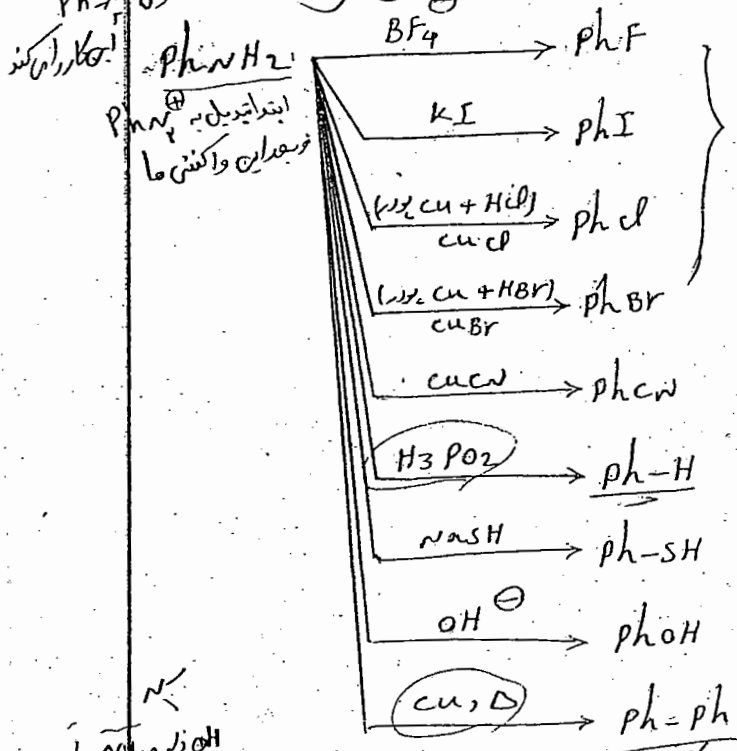 این کار را می‌کند
PhNH2
ابتدا تبدیل به PhN2⊕
و بعد این واکنش ها
BF4 → PhF
KI → PhI
(پودر Cu + HCl) CuCl → PhCl
(پودر Cu + HBr) CuBr → PhBr
CuCN → PhCN
H3PO2 → Ph-H
NaSH → Ph-SH
OH⊖ → PhOH
Cu, Δ → Ph-Ph